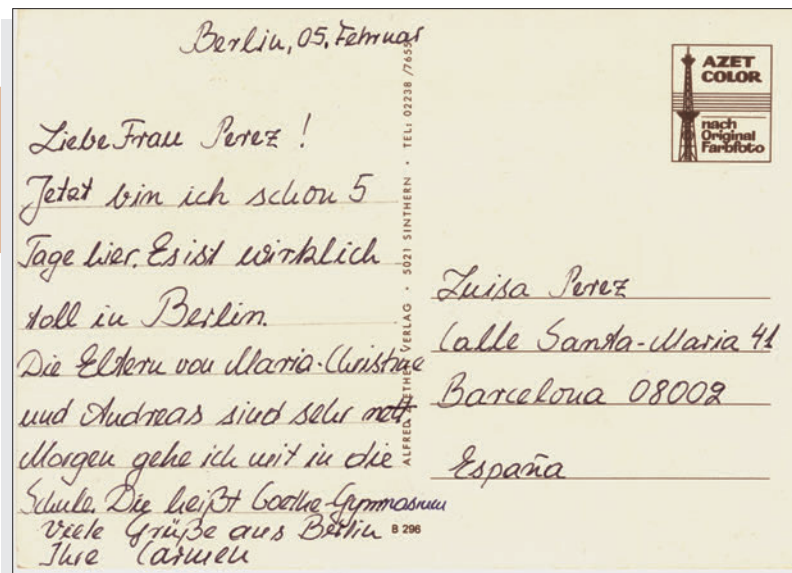 Berlin, 05. Februar
Liebe Frau Perez !
Jetzt bin ich schon 5
Tage hier. Es ist wirklich
toll in Berlin.
Die Eltern von Maria-Christine
und Andreas sind sehr nett
Morgen gehe ich mit in die
Schule. Die heißt Goethe-Gymnasium
Viele Grüße aus Berlin
Ihre Carmen
VERLAG · 5021 SINTHERN · TEL: 02238 /7655
B 296
AZET
COLOR
nach
Original
Farbfoto
Luisa Perez
Calle Santa-Maria 41
Barcelona 08002
España